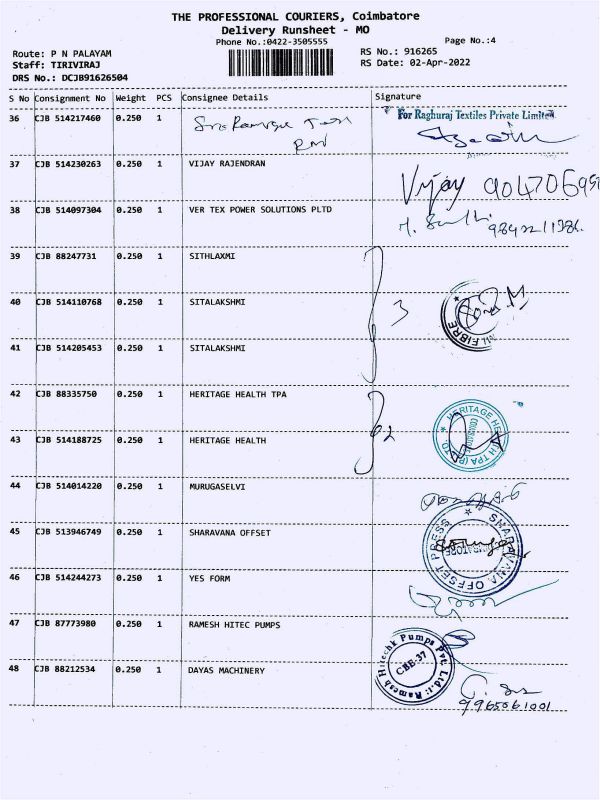 THE PROFESSIONAL COURIERS, Coimbatore
Delivery Runsheet - MO
Phone No.:0422-3505555
Page No.:4
Route: P N PALAYAM
RS No.: 916265
Staff: TIRIVIRAJ
RS Date: 02-Apr-2022
DRS No.: DCJB91626504
S No Consignment No Weight PCS Consignee Details Signature
36 CJB 514217460 0.250 1 For Raghuraj Textiles Private Limited
37 CJB 514230263 0.250 1 VIJAY RAJENDRAN Vijay
38 CJB 514097304 0.250 1 VER TEX POWER SOLUTIONS PLTD
39 CJB 88247731 0.250 1 SITHLAXMI
40 CJB 514110768 0.250 1 SITALAKSHMI 3 MI FIBRE
41 CJB 514205453 0.250 1 SITALAKSHMI
42 CJB 88335750 0.250 1 HERITAGE HEALTH TPA 2 HERITAGE HEALTH TPA
43 CJB 514188725 0.250 1 HERITAGE HEALTH
44 CJB 514014220 0.250 1 MURUGASELVI
45 CJB 513946749 0.250 1 SHARAVANA OFFSET SHARAVANA OFFSET PRESS
46 CJB 514244273 0.250 1 YES FORM
47 CJB 87773980 0.250 1 RAMESH HITEC PUMPS Ramesh Hitechk Pumps Pvt. Ltd. CBE-37
48 CJB 88212534 0.250 1 DAYAS MACHINERY
9965061001